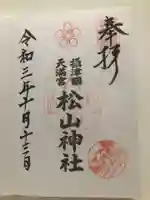 奉拝
摂津國
天満宮
松山神社
令和三年十月十三日